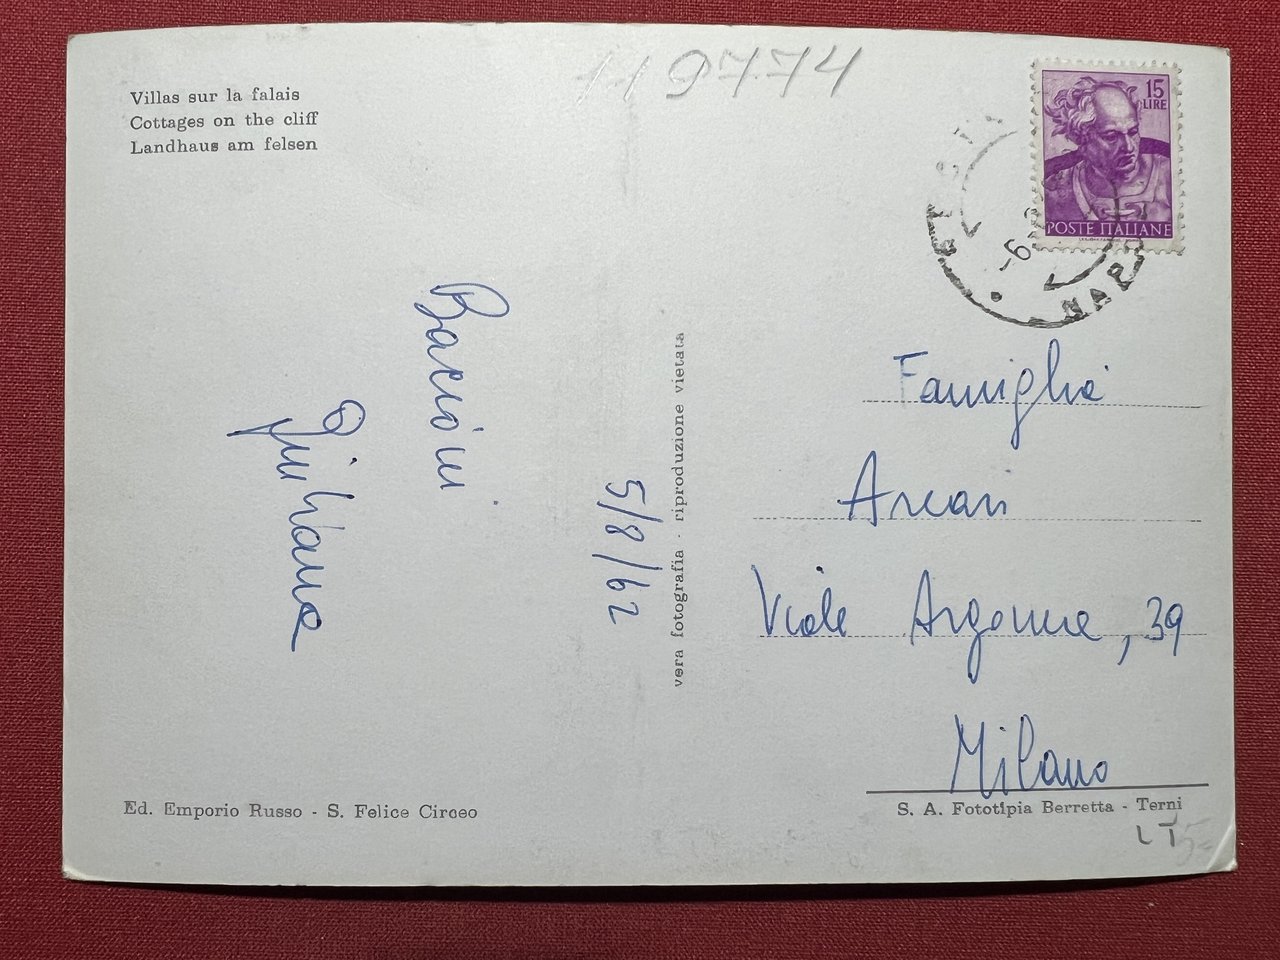 119774
Villas sur la falais
Cottages on the cliff
Landhaus am felsen
15
LIRE
POSTE ITALIANE
-6
Bacioni
Giuliana
5/8/62
vera fotografia - riproduzione vietata
Famiglia
Arcari
Viale Argonne, 39
Milano
Ed. Emporio Russo - S. Felice Circeo
S. A. Fototipia Berretta - Terni
LT